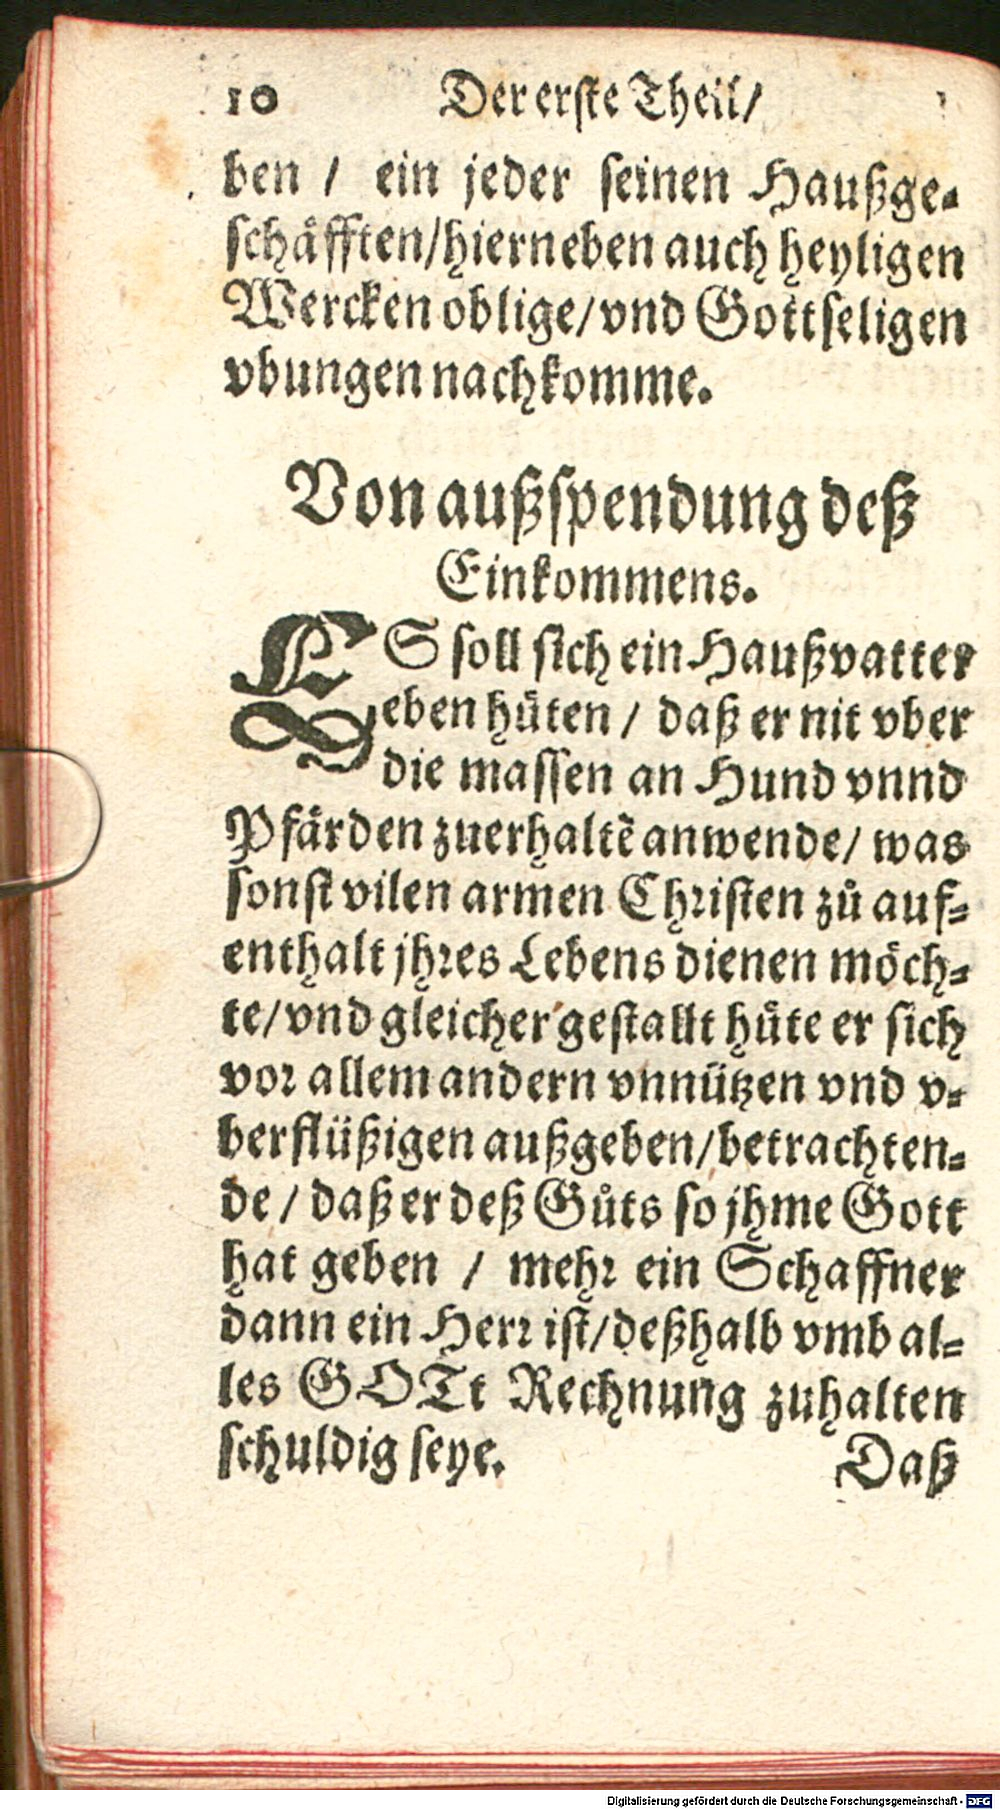 10 Der erste Theil/
ben / ein jeder seinen Haußge-
schäfften/hierneben auch heyligen
Wercken oblige/vnd Gottseligen
vbungen nachkomme.
Von außspendung deß
Einkommens.
ES soll sich ein Haußvatter
eben hüten / daß er nit vber
die massen an Hund vnnd
Pfärden zuerhaltẽ anwende/ was
sonst vilen armen Christen zů auf-
enthalt jhres Lebens dienen möch-
te/vnd gleicher gestallt hüte er sich
vor allem andern vnnützen vnd v-
berflüßigen außgeben/betrachten-
de / daß er deß Gůts so jhme Gott
hat geben / mehr ein Schaffner
dann ein Herr ist/deßhalb vmb al-
les GOTt Rechnung zuhalten
schuldig seye. Daß
Digitalisierung gefördert durch die Deutsche Forschungsgemeinschaft - DFG